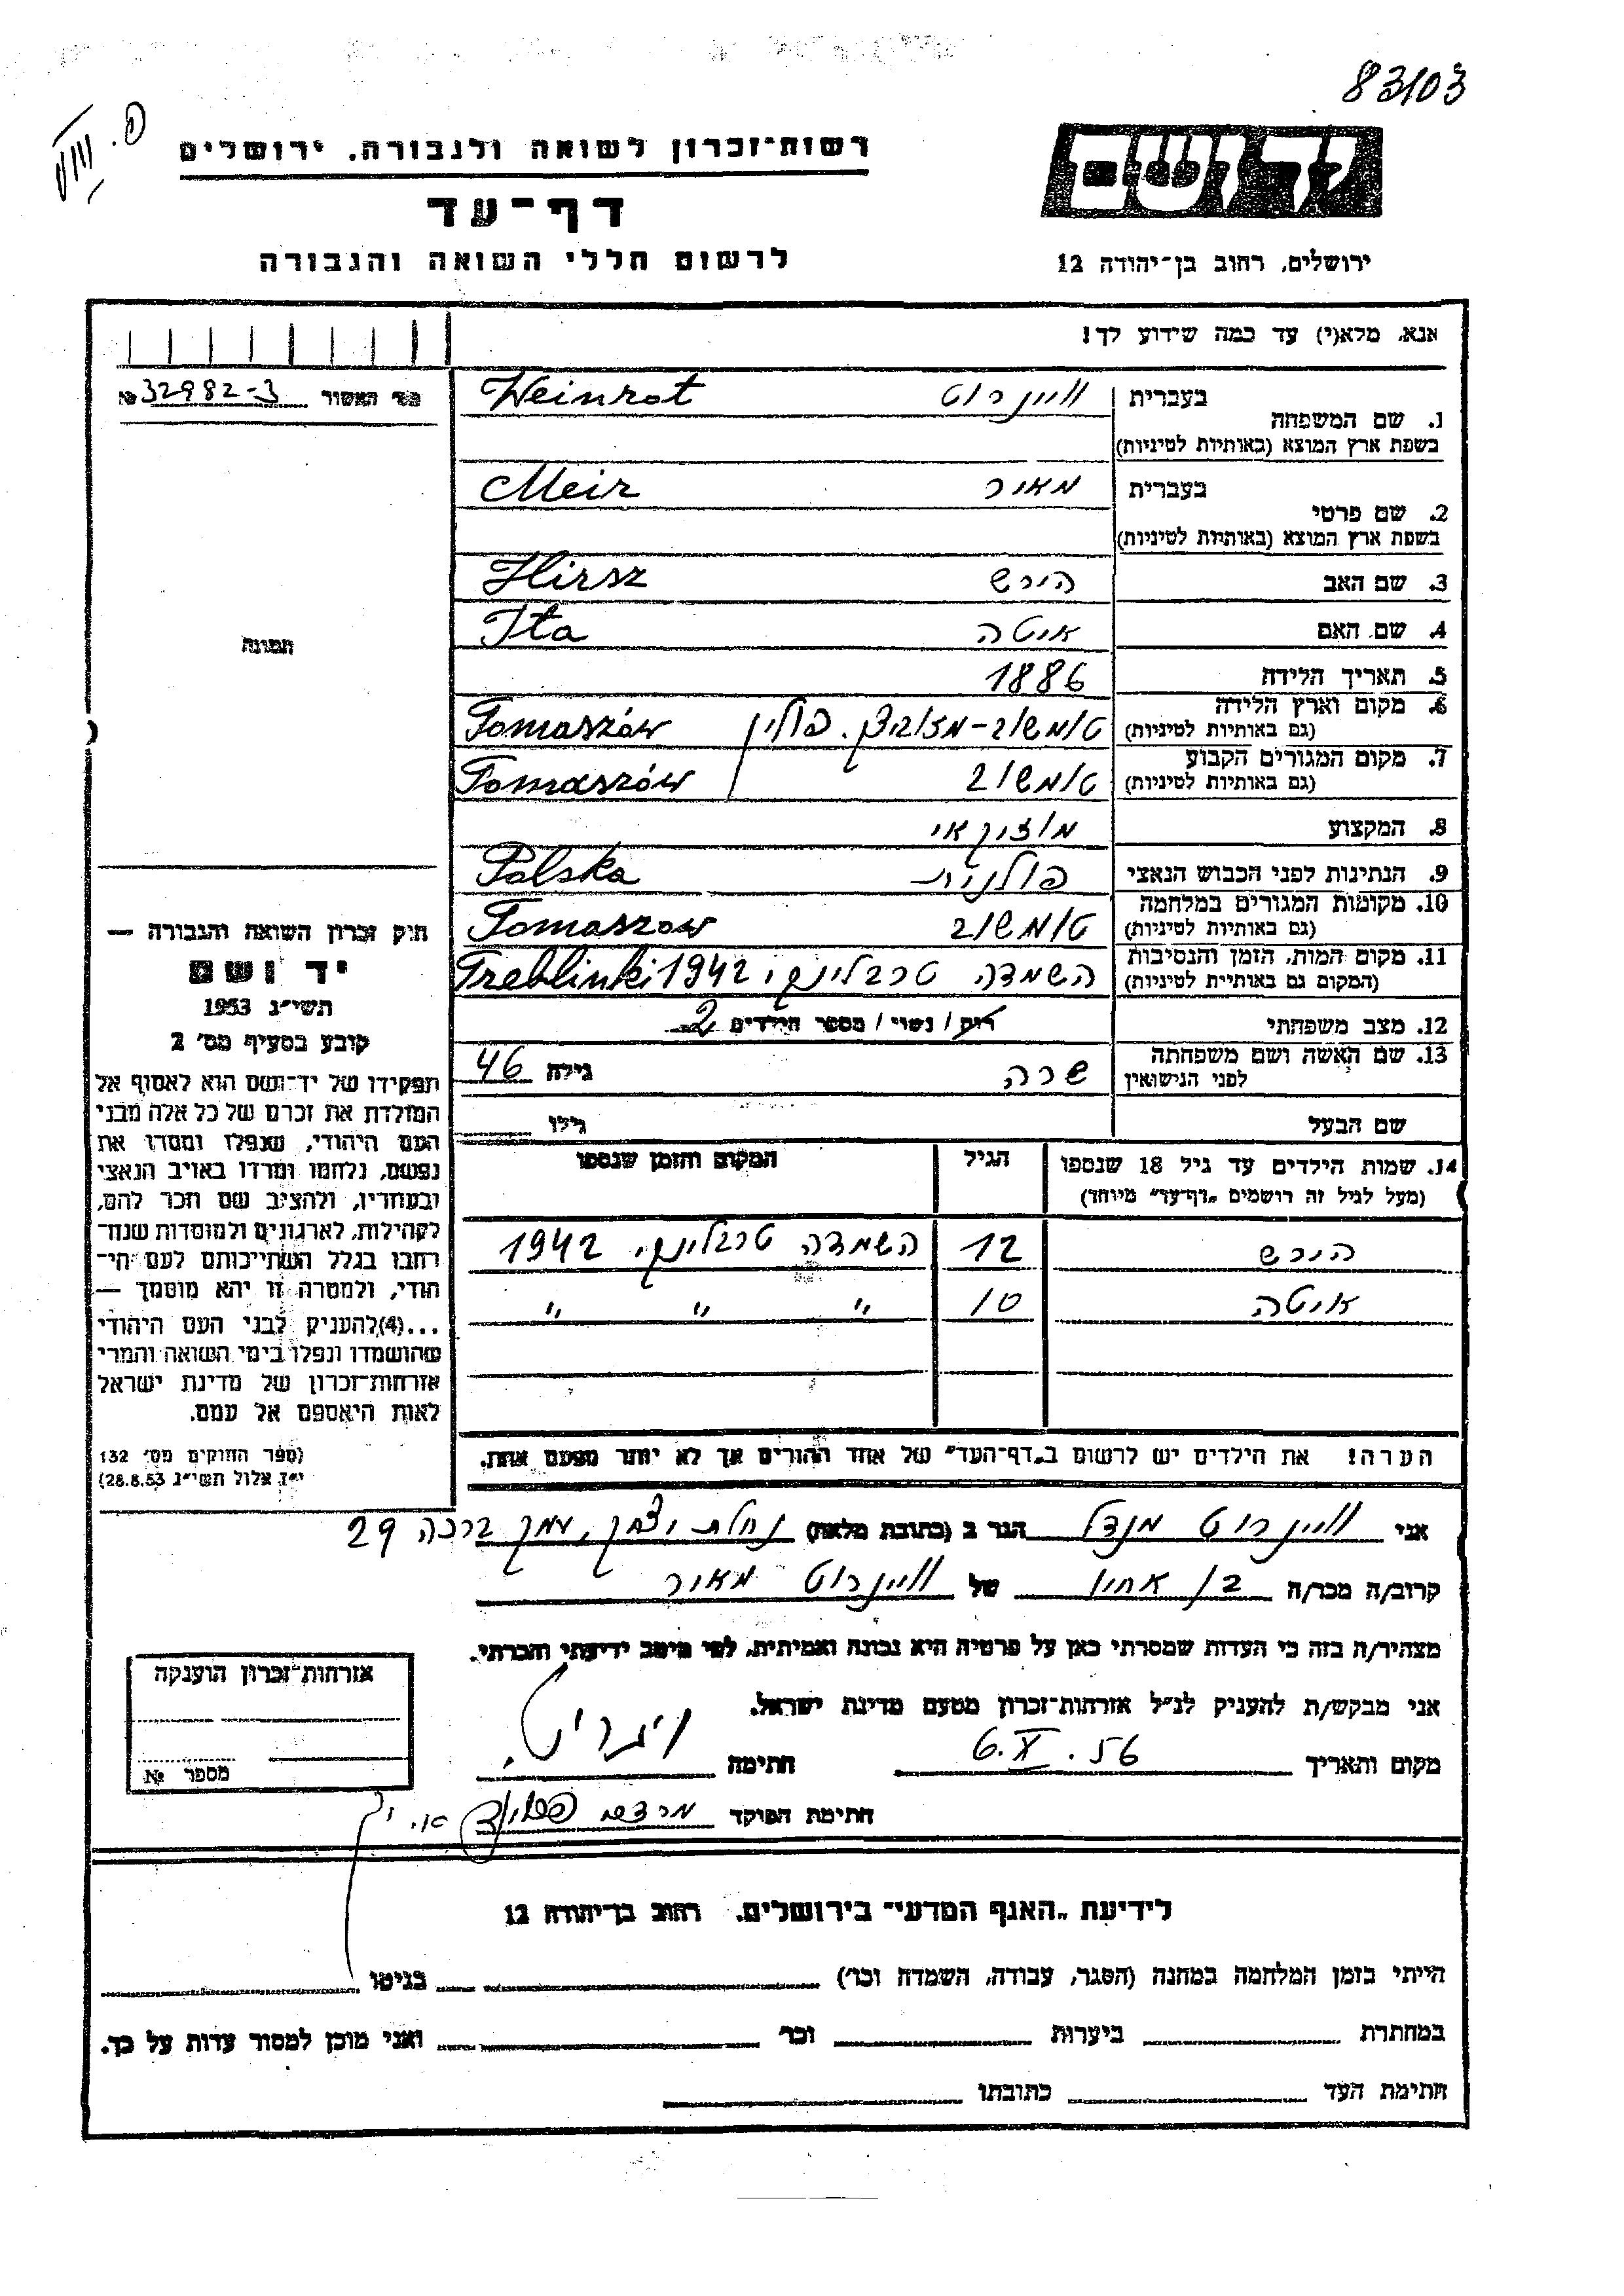 83103
רשות־זכרון לשואה ולגבורה. ירושלים
יד ושם
דף־עד
לרשום חללי השואה והגבורה
ירושלים, רחוב בן־יהודה 12
אנא, מלא(י) עד כמה שידוע לך!
32982-3 №
1. שם המשפחה בעברית ווינרוט Weinrot
בשפת ארץ המוצא (באותיות לטיניות)
2. שם פרטי בעברית מאיר Meir
בשפת ארץ המוצא (באותיות לטיניות)
3. שם האב הירש Hirsz
4. שם האם איטה Ita
5. תאריך הלידה 1886
6. מקום וארץ הלידה (גם באותיות לטיניות) טומשוב-מזוביצק. פולין Tomaszów
7. מקום המגורים הקבוע (גם באותיות לטיניות) טומשוב Tomaszów
8. המקצוע מוזיקאי
9. הנתינות לפני הכבוש הנאצי פולנית Polska
10. מקומות המגורים במלחמה (גם באותיות לטיניות) טומשוב Tomaszow
11. מקום המות, הזמן והנסיבות (המקום גם באותיות לטיניות) השמדה טרבלינקי, 1942 Treblinki
12. מצב משפחתי רוק/נשוי/מספר הילדים 2
13. שם האשה ושם משפחתה לפני הנישואין שרה גילה 46
שם הבעל גילו
14. שמות הילדים עד גיל 18 שנספו (מעל לגיל זה רושמים „דף־עד” מיוחד) הגיל המקום והזמן שנספו
הירש 12 השמדה טרבלינקי, 1942
איטה 10 " " "
הערה! את הילדים יש לרשום ב„דף־העד” של אחד ההורים אך לא יותר מפעם אחת.
תמונה
חוק זכרון השואה והגבורה —
יד ושם
תשי״ג 1953
קובע בסעיף מס׳ 2
תפקידו של יד־ושם הוא לאסוף אל
המולדת את זכרם של כל אלה מבני
העם היהודי, שנפלו ומסרו את
נפשם, נלחמו ומרדו באויב הנאצי
ובעוזריו, ולהציב שם וזכר להם,
לקהילות, לארגונים ולמוסדות שנח־
רבו בגלל השתייכותם לעם הי־
הודי, ולמטרה זו יהא מוסמך —
...(4) להעניק לבני העם היהודי
שהושמדו ונפלו בימי השואה והמרי
אזרחות־זכרון של מדינת ישראל
לאות היאספם אל עמם.
(ספר החוקים מס׳ 132
י״ז אלול תשי״ג 28.8.53)
אני ווינרוט מנדל הגר ב (כתובת מלאה) נחלת יצחק, עמק ברכה 29
קרוב/ה מכר/ה בן אחיו של ווינרוט מאיר
מצהיר/ה בזה כי העדות שמסרתי כאן על פרטיה היא נכונה ואמיתית, לפי מיטב ידיעתי והכרתי.
אני מבקש/ת להעניק לנ״ל אזרחות־זכרון מטעם מדינת ישראל.
מקום ותאריך 6.X.56 חתימה
חתימת הפוקד
אזרחות־זכרון הוענקה
מספר №
לידיעת „האגף המדעי” בירושלים. רחוב בן־יהודה 12
הייתי בזמן המלחמה במחנה (הסגר, עבודה, השמדה וכו׳) בגיטו
במחתרת ביערות וכו׳ ואני מוכן למסור עדות על כך.
חתימת העד כתובתו